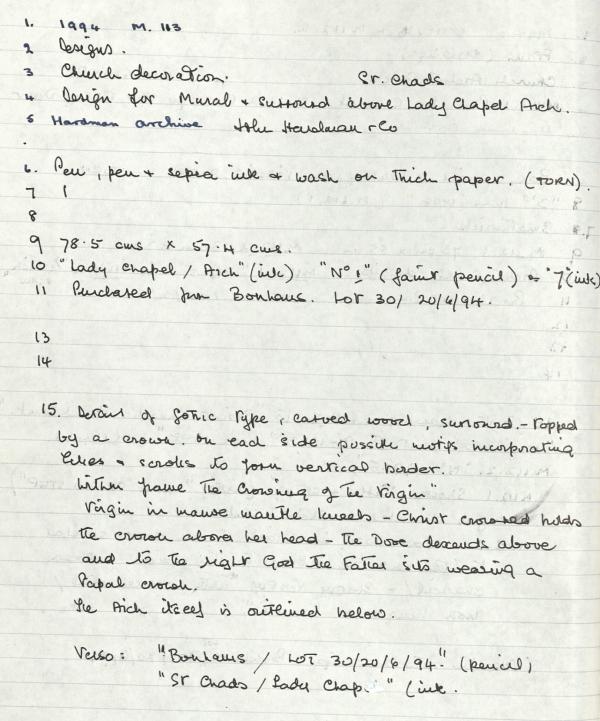 1. 1994 M. 113
2 Designs.
3 Church decoration. St. Chads
4 Design for Mural & surround above Lady Chapel Arch.
5 Hardman archive John Hardman & Co
6. Pen, pen & sepia ink & wash on thick paper. (TORN).
7 1
8
9 78.5 cms x 57.4 cms.
10 "Lady Chapel / Arch" (ink) "No 1" (faint pencil) & "7" (ink)
11 Purchased from Bonhams. LOT 30/ 20/6/94.
13
14
15. Detail of Gothic type, carved wood, surround. - topped
by a crown. On each side possible motifs incorporating
lilies & scrolls to form vertical border.
Within frame The Crowning of the Virgin"
Virgin in mauve mantle kneels - Christ crowned holds
the crown above her head - the Dove descends above
and to the right God the Father sits wearing a
Papal crown.
The Arch itself is outlined below.
Verso: "Bonhams / LOT 30/20/6/94." (pencil)
"St Chads / Lady Chap. " (ink.